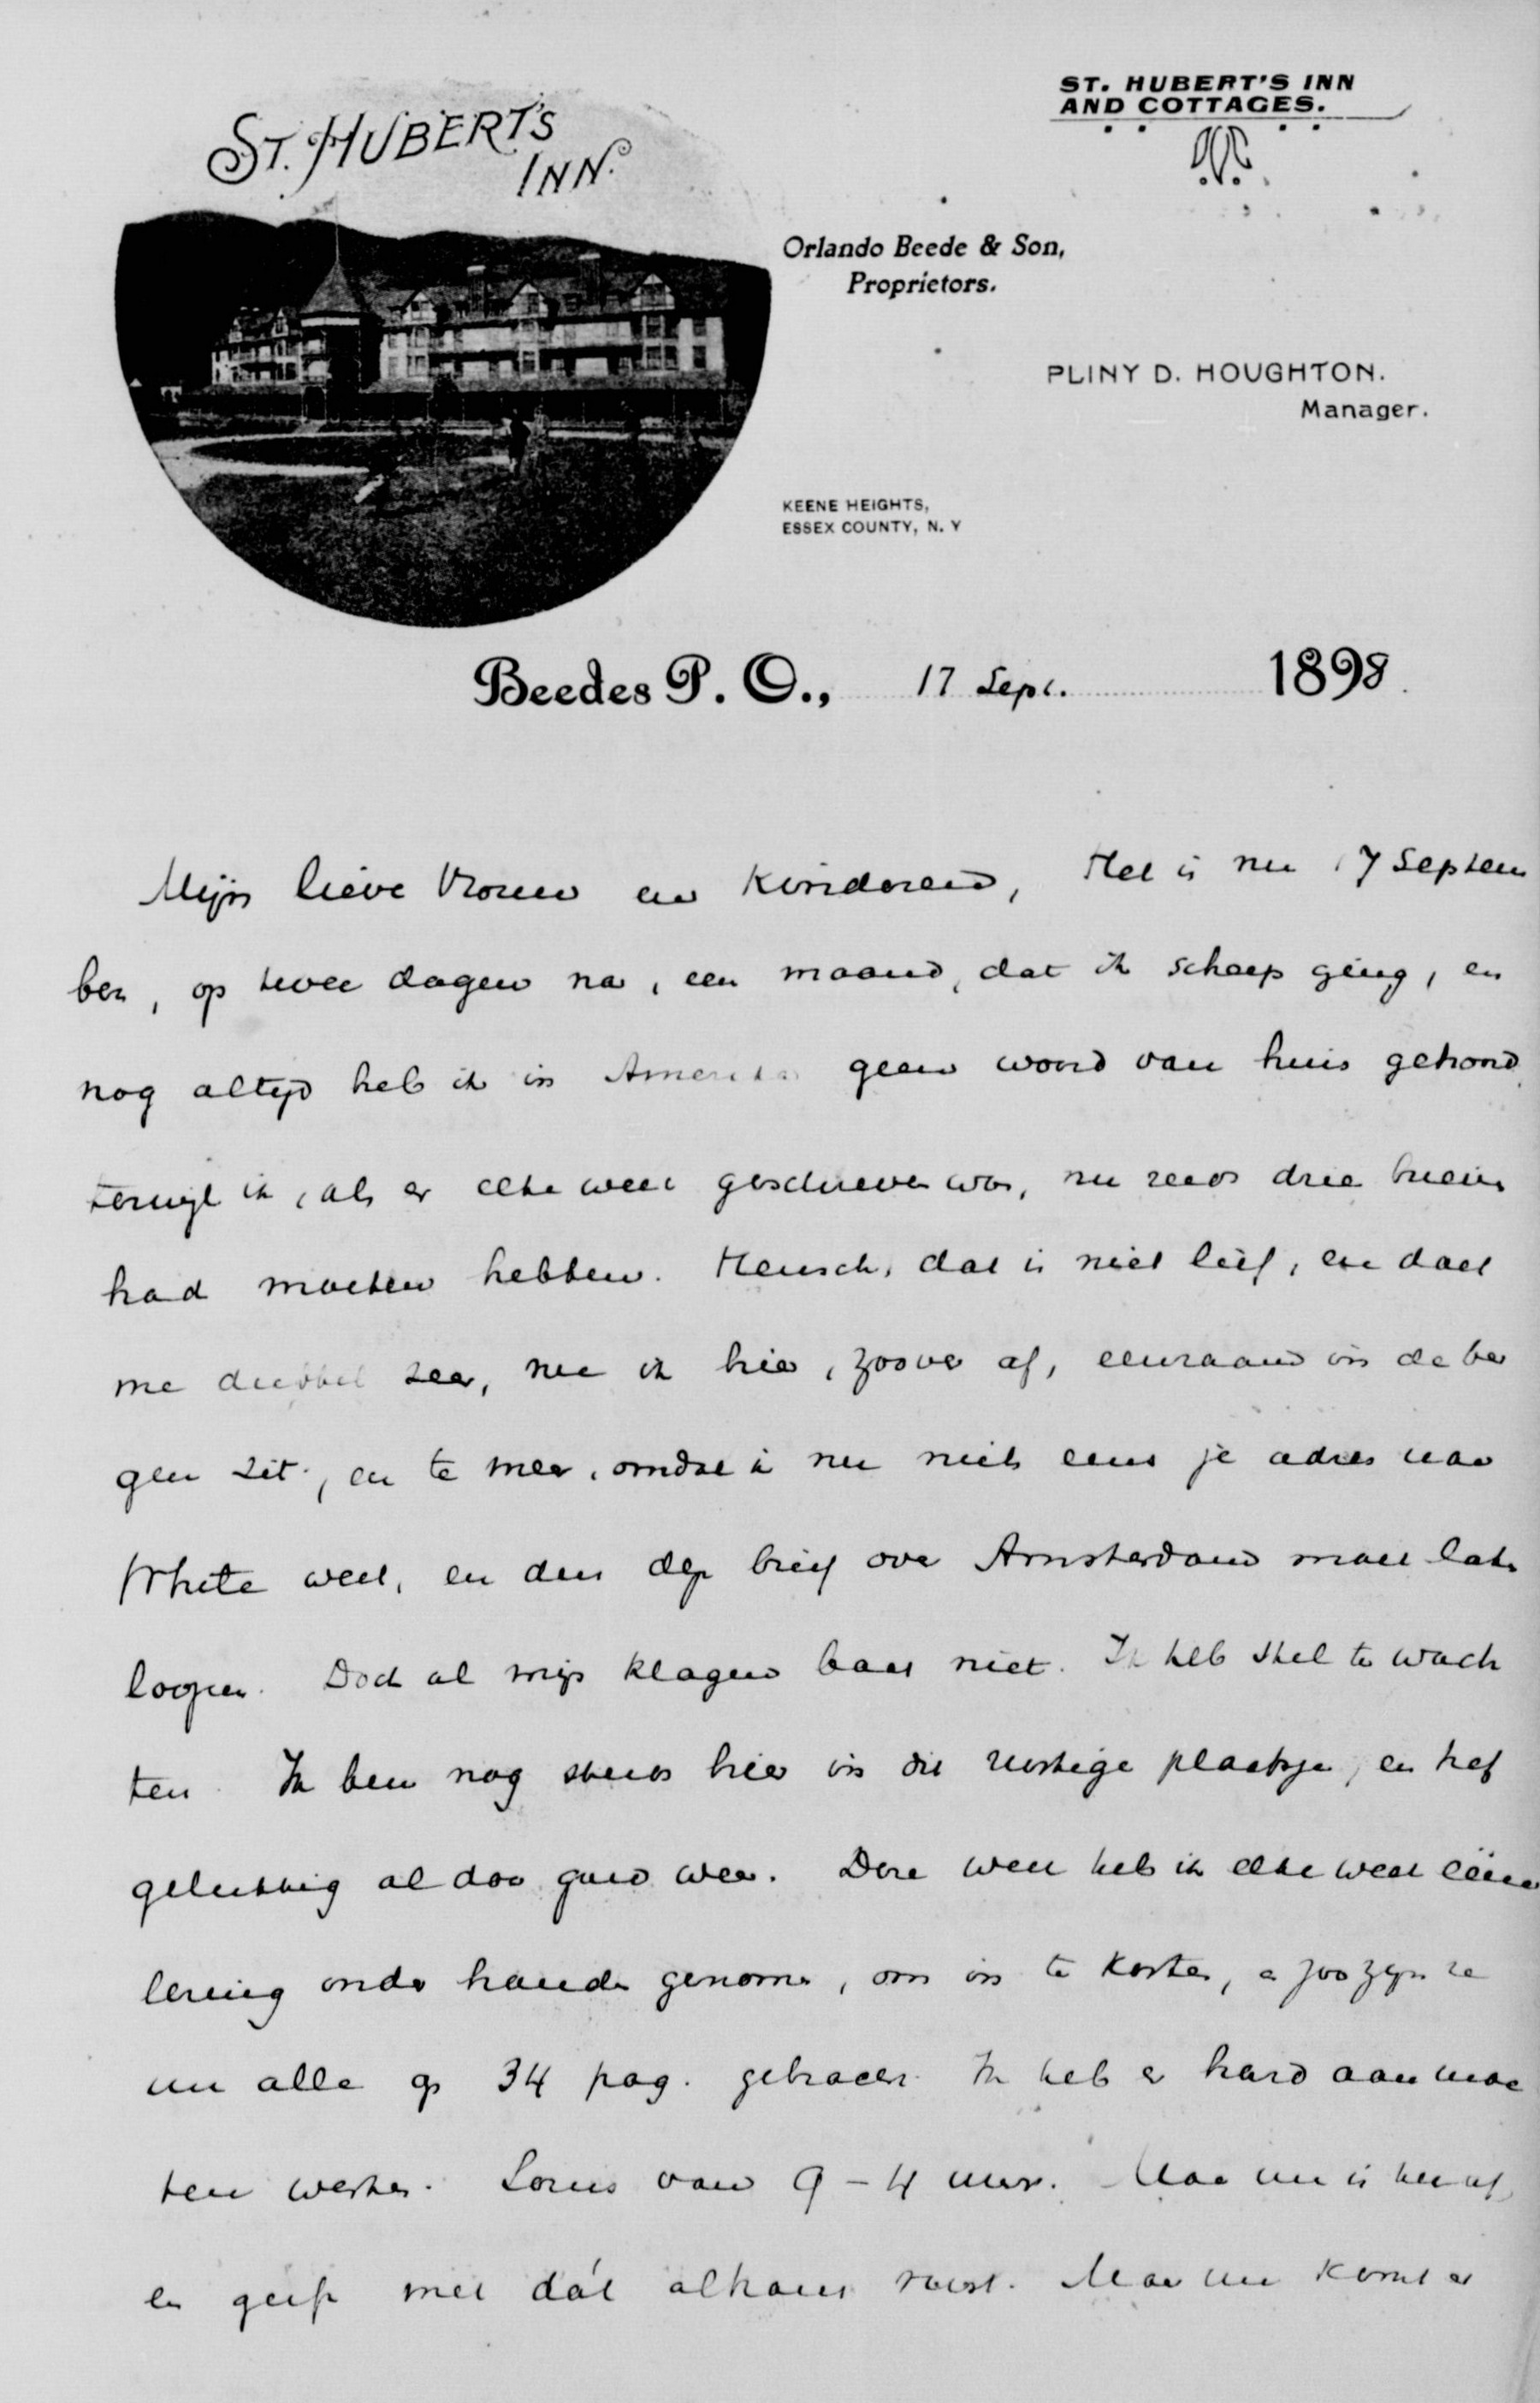 ST. HUBERT'S
INN.
ST. HUBERT'S INN
AND COTTAGES.
Orlando Beede & Son,
Proprietors.
PLINY D. HOUGHTON.
Manager.
KEENE HEIGHTS,
ESSEX COUNTY, N. Y
Beedes P. O., 17 Sept. 1898.
Mijn lieve Vrouw en Kinderen, Het is nu 17 Septem
ber, op twee dagen na, een maand, dat ik scheep ging, en
nog altijd heb ik in Amerika geen woord van huis gehoord,
terwijl ik, als er elke week geschreven was, nu reeds drie brieven
had moeten hebben. Heusch, dat is niet lief, en doet
me dubbel zeer, nu ik hier, zoover af, eenzaam in de ber
gen zit, en te meer, omdat ik nu niets eens je adres naar
White weet, en den brief over Amsterdam moet laten
loopen. Doch al mijn klagen baat niet. Ik heb stil te wach
ten. Ik ben nog steeds hier in dit rustige plaatsje, en tref
gelukkig al door goed weer. Deze week heb ik elke week eéne
lezing onder handen genomen, om in te korten, en zoo zijn ze
nu alle op 34 pag. gebracht. Ik heb er hard aan moe
ten werken. Soms van 9 - 4 uur. Maar nu is het af,
en geeft met dát althans rust. Maar nu komt er